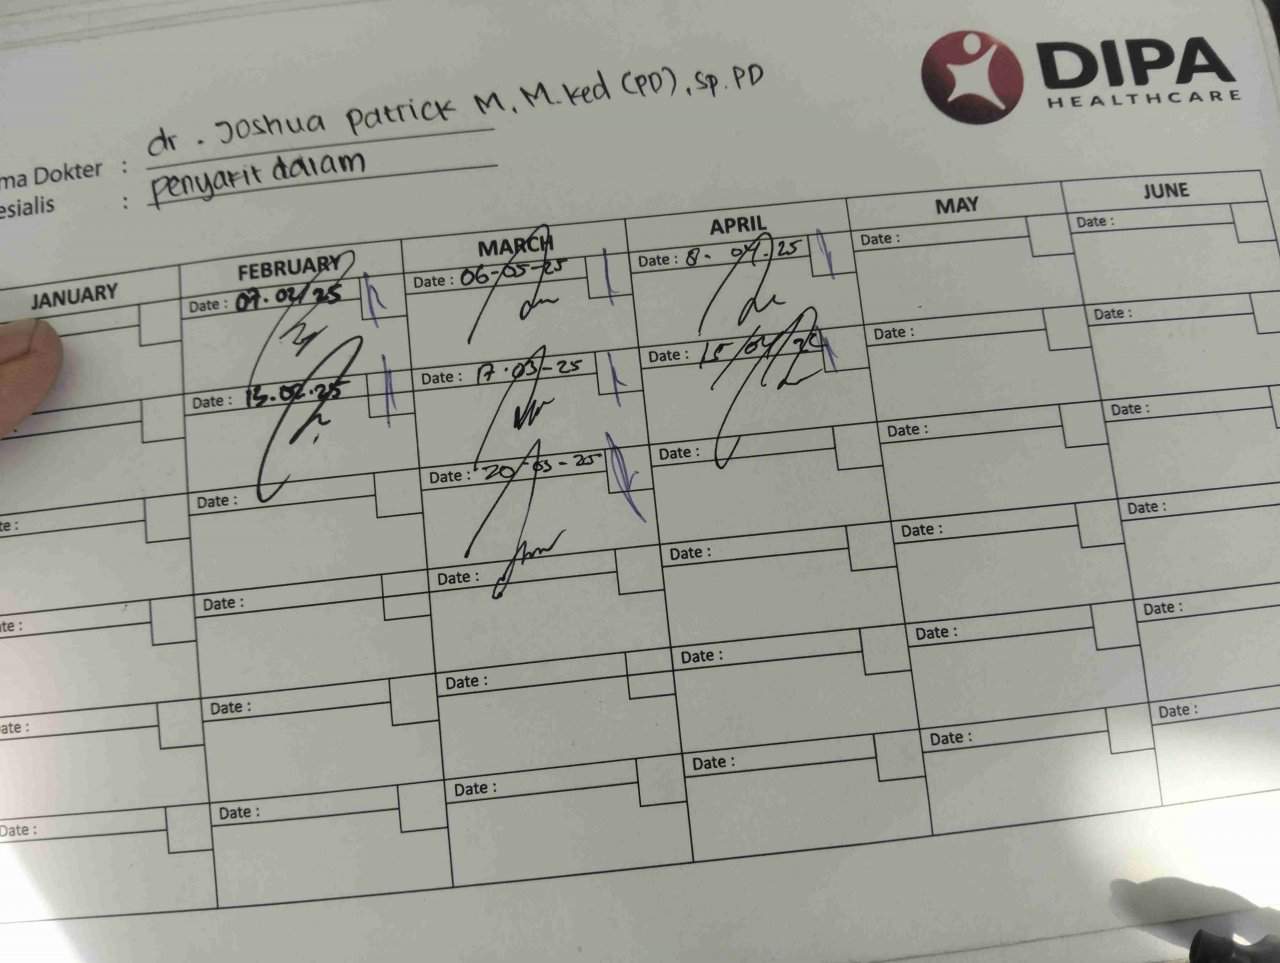 DIPA
HEALTHCARE
ma Dokter : dr. Joshua Patrick M, M.Ked (PD), Sp.PD
esialis : penyakit dalam
JANUARY FEBRUARY MARCH APRIL MAY JUNE
Date : 07.02/25 Date : 06-03-25 Date : 8. 04.25 Date : Date :
Date : 13.02.25 Date : 17.03-25 Date : 15/04/25 Date : Date :
te : Date : Date : 20-03-25 Date : Date : Date :
te : Date : Date : Date : Date : Date :
ate : Date : Date : Date : Date : Date :
Date : Date : Date : Date : Date : Date :